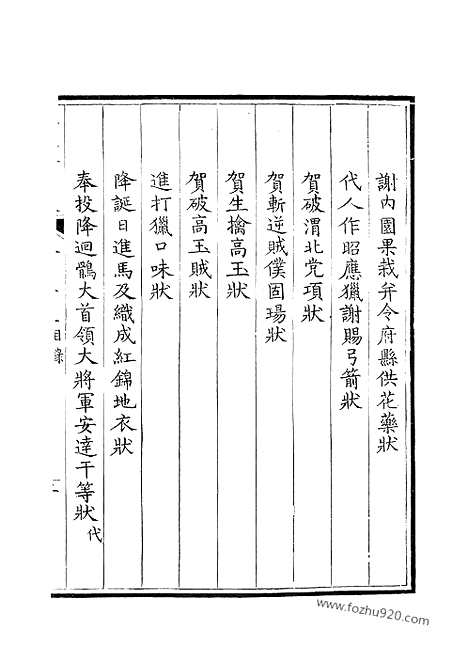 謝內園果栽弁令府縣供花藥狀
代人作昭應獵謝賜弓箭狀
賀破渭北党項狀
賀斬逆賊僕固瑒狀
賀生擒高玉狀
賀破高玉賊狀
進打獵口味狀
降誕日進馬及織成紅錦地衣狀
奉投降迴鶻大首領大將軍安達干等狀 代
目錄
www.fozhu920.com